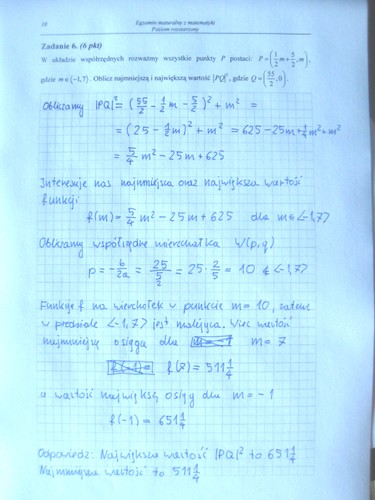 10
Egzamin maturalny z matematyki
Poziom rozszerzony
Zadanie 6. (6 pkt)
W układzie współrzędnych rozważmy wszystkie punkty P postaci: P = (1/2 m + 5/2, m),
gdzie m ∈ ⟨−1, 7⟩. Oblicz najmniejszą i największą wartość |PQ|², gdzie Q = (55/2, 0).
Obliczamy |PQ|² = (55/2 − 1/2 m − 5/2)² + m² =
= (25 − 1/2 m)² + m² = 625 − 25m + 1/4 m² + m²
= 5/4 m² − 25m + 625
Interesuje nas najmniejsza oraz największa wartość
funkcji
f(m) = 5/4 m² − 25m + 625 dla m ∈ <−1,7>
Obliczamy współrzędne wierzchołka W(p,q)
p = −b/2a = 25/(5/2) = 25 · 2/5 = 10 ∉ <−1,7>
Funkcja f ma wierzchołek w punkcie m = 10, zatem
w przedziale <−1,7> jest malejąca. Więc wartość
najmniejszą osiąga dla m = 7
f(7) = 511 1/4
a wartość największą osiąga dla m = −1
f(−1) = 651 1/4
Odpowiedz: Największa wartość |PQ|² to 651 1/4
Najmniejsza wartość to 511 1/4